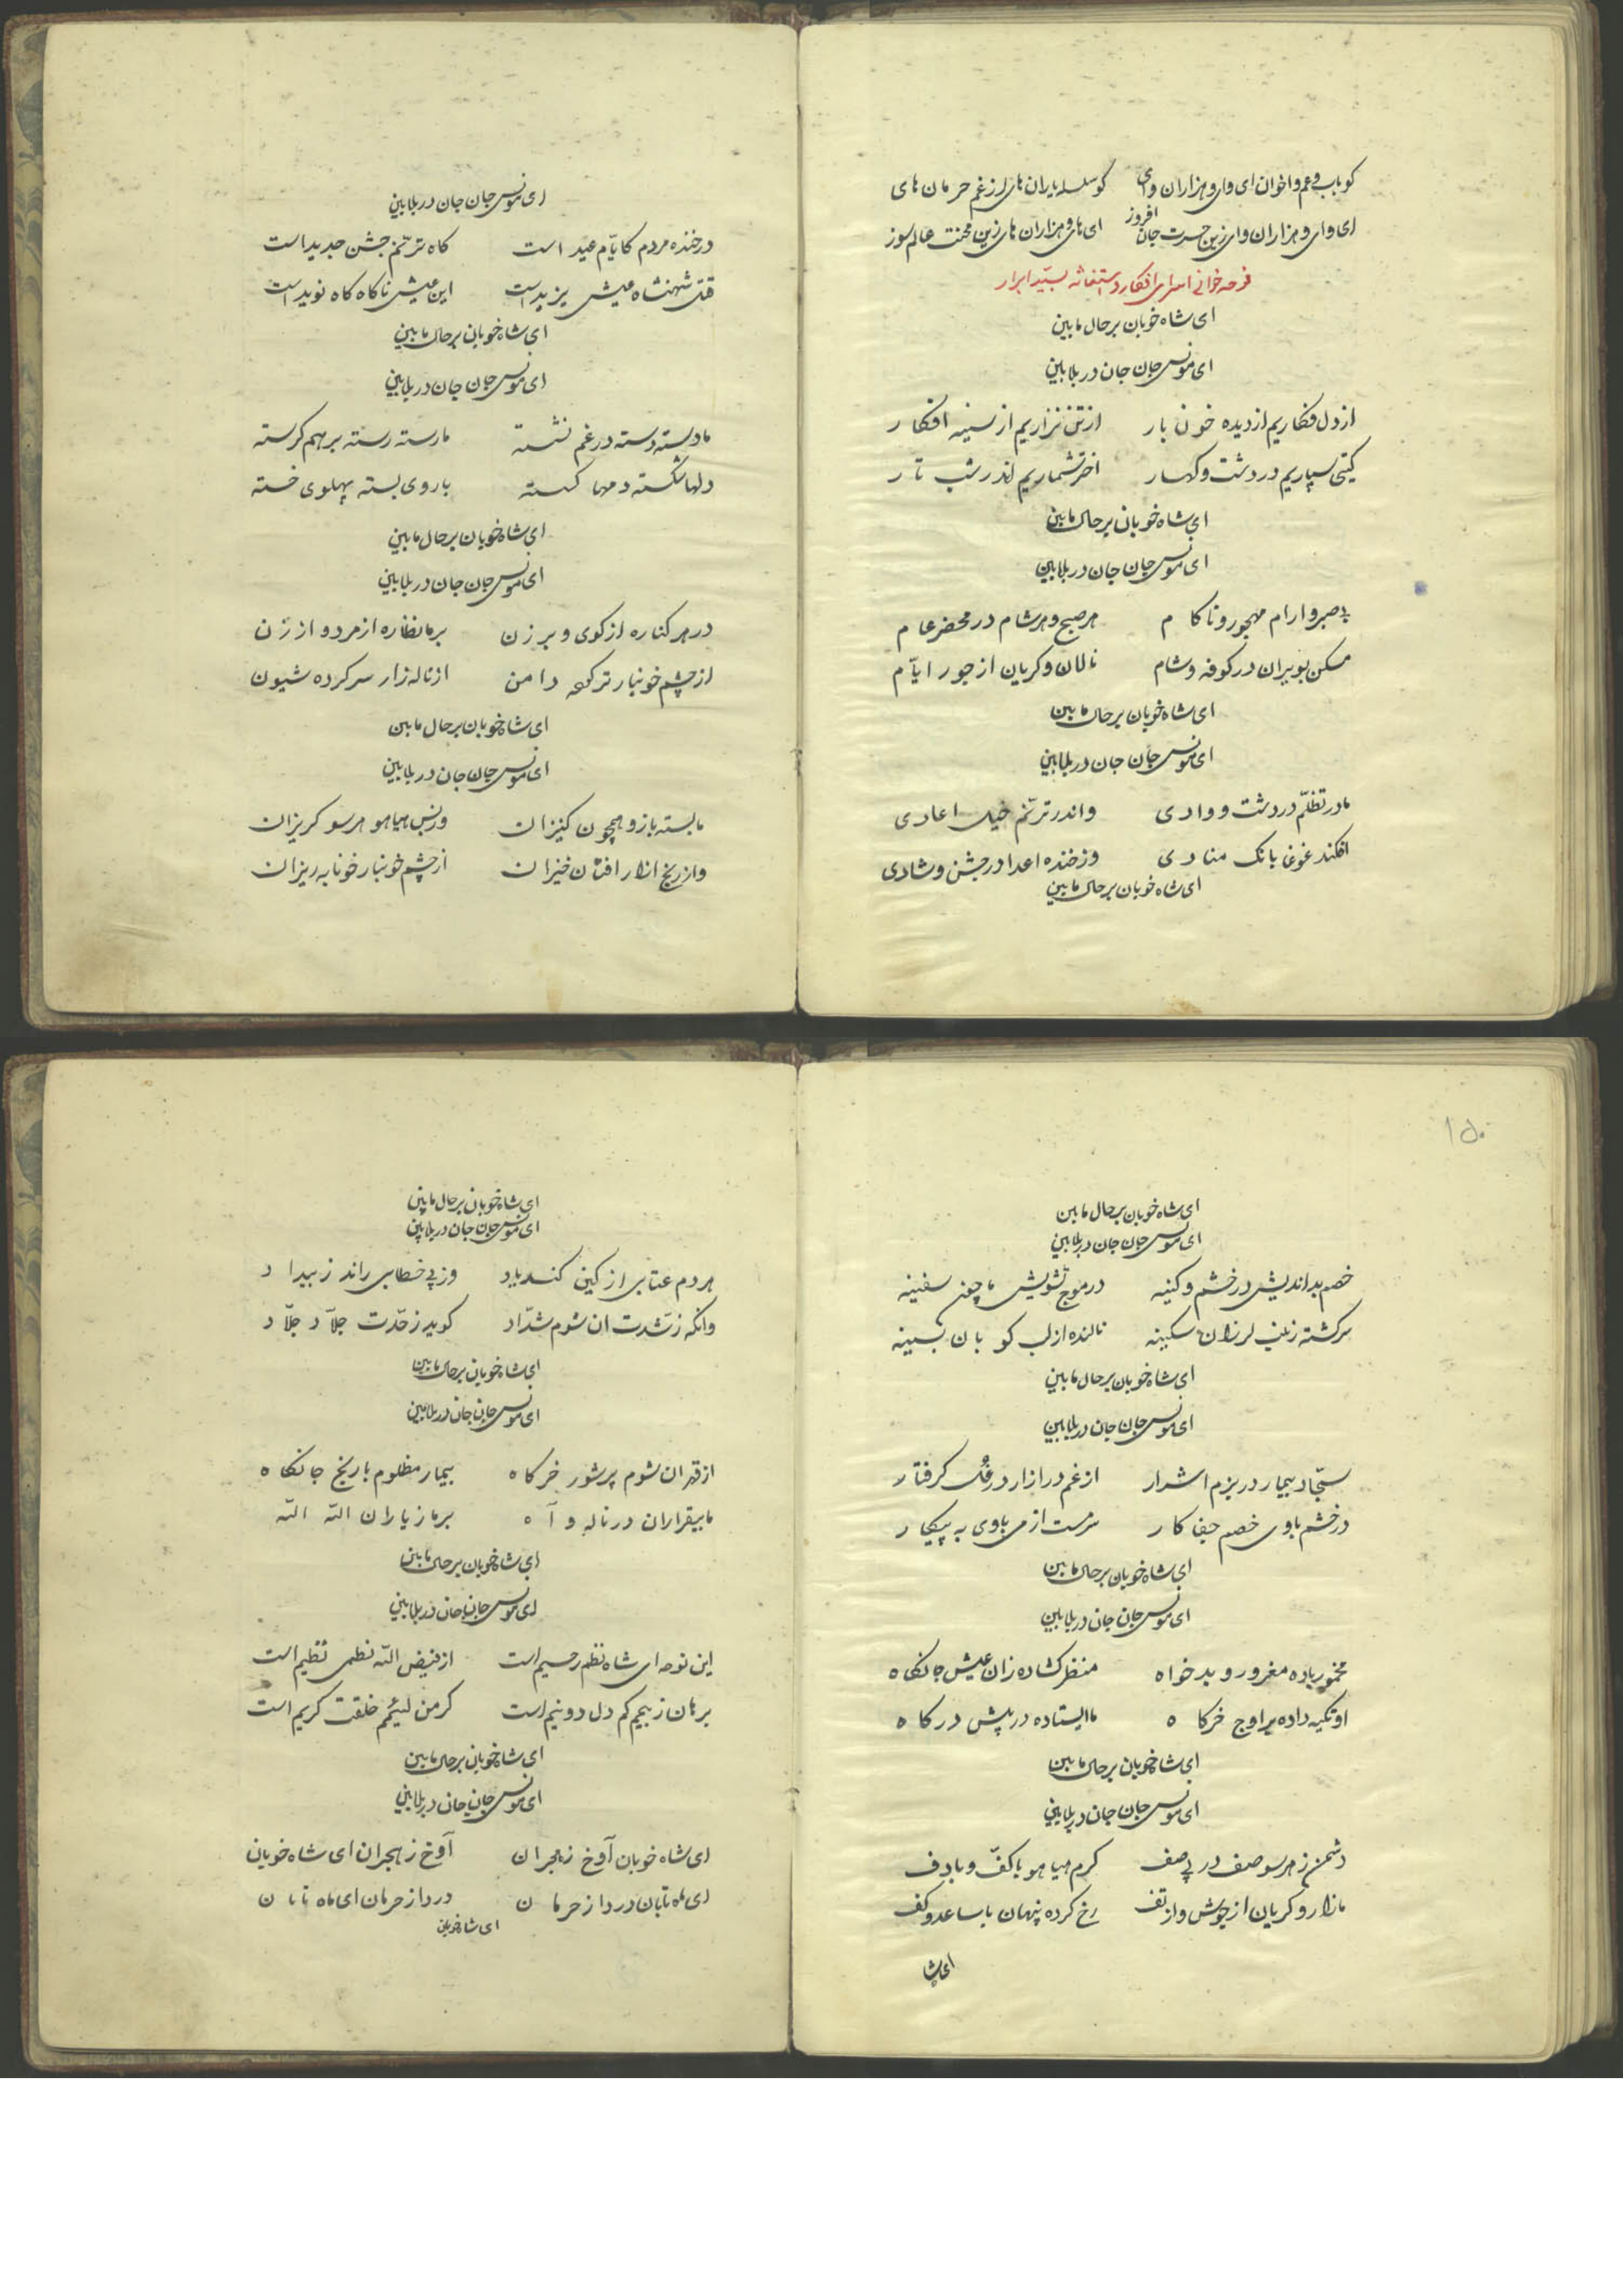 کو باب و عم و اخوان ای وای و هزاران وای کو سلسله یاران های از غم حرمان های
ای وای و هزاران وای زین حسرت جان افروز ای های و هزاران های زین محنت عالم سوز
نوحه خوانی اسرای افکار و استغاثه بسید ابرار
ای شاه خوبان بر حال ما بین
ای مونس جان جان در بلا بین
از دل فکاریم از دیده خون بار از تن نزاریم از سینه افکار
کیتی سپاریم در دشت و کهسار اختر شماریم اندر شب تار
ای شاه خوبان بر حال ما بین
ای مونس جان جان در بلا بین
بی صبر و ارام مهجور و ناکام هر صبح و هر شام در محضر عام
مسکن بویران در کوفه و شام نالان و کریان از جور ایّام
ای شاه خوبان بر حال ما بین
ای مونس جان جان در بلا بین
ما در تظلّم در دشت و وادی واندر ترنّم خیل اعادی
افکند غوغا بانک منادی وز خنده اعدا در جشن و شادی
ای شاه خوبان بر حال ما بین
ای مونس جان جان در بلا بین
در خنده مردم کایّام عید است کاه ترنّم جشن جدید است
قتل شهنشاه عیش یزید است این عیش ناکاه کاه نوید است
ای شاه خوبان بر حال ما بین
ای مونس جان جان در بلا بین
ما دسته دسته در غم نشسته ما رسته رسته بر هم کرسته
دلها شکسته دمها کسسته باروی بسته پهلوی خسته
ای شاه خوبان بر حال ما بین
ای مونس جان جان در بلا بین
در هر کناره از کوی و برزن بر ما نظاره از مرد و از زن
از چشم خونبار تر کرده دامن از ناله زار سر کرده شیون
ای شاه خوبان بر حال ما بین
ای مونس جان جان در بلا بین
ما بسته بازو همچون کنیزان وز بس هیاهو هر سو کریزان
واز رنج ازار افتان خیزان از چشم خونبار خونابه ریزان
۱۵۰
ای شاه خوبان بر حال ما بین
ای مونس جان جان در بلا بین
خصم بد اندیش در خشم و کینه در موج تشویش ما چون سفینه
سرکشته زینب لرزان سکینه نالنده از لب کوبان بسینه
ای شاه خوبان بر حال ما بین
ای مونس جان جان در بلا بین
سجّاد بیمار در بزم اشرار از غم در ازار در غل کرفتار
در خشم با وی خصم جفا کار سرمست از می با وی به پیکار
ای شاه خوبان بر حال ما بین
ای مونس جان جان در بلا بین
مخمور باده مغرور و بد خواه منظر کشاده زان عیش جانکاه
او تکیه داده بر اوج خرکاه ما ایستاده در پیش درکاه
ای شاه خوبان بر حال ما بین
ای مونس جان جان در بلا بین
دشمن ز هر سو صف در پی صف کرم هیاهو با کفّ و با دف
ما زار و کریان از جوش و از تف رخ کرده پنهان با ساعد و کف
ای شا
ای شاه خوبان بر حال ما بین
ای مونس جان جان در بلا بین
هر دم عتابی از کین کند یاد وز پی خطابی راند ز بیداد
وانکه ز شدّت ان شوم شدّاد کوید ز حدّت جلّاد جلّاد
ای شاه خوبان بر حال ما بین
ای مونس جان جان در بلا بین
از قهر ان شوم پر شور خرکاه بیمار مظلوم با رنج جانکاه
ما بیقراران در ناله و آه بر ما ز یاران اللّه اللّه
ای شاه خوبان بر حال ما بین
ای مونس جان جان در بلا بین
این نوحه ای شاه نظم رحیم است از فیض اللّه نظمی نظیم است
برهان ز بیمم کم دل دو نیم است کر من لئیمم خلقت کریم است
ای شاه خوبان بر حال ما بین
ای مونس جان جان در بلا بین
ای شاه خوبان آوخ ز هجران آوخ ز هجران ای شاه خوبان
ای ماه تابان درد از حرمان درد از حرمان ای ماه تابان
ای شاه خوبان